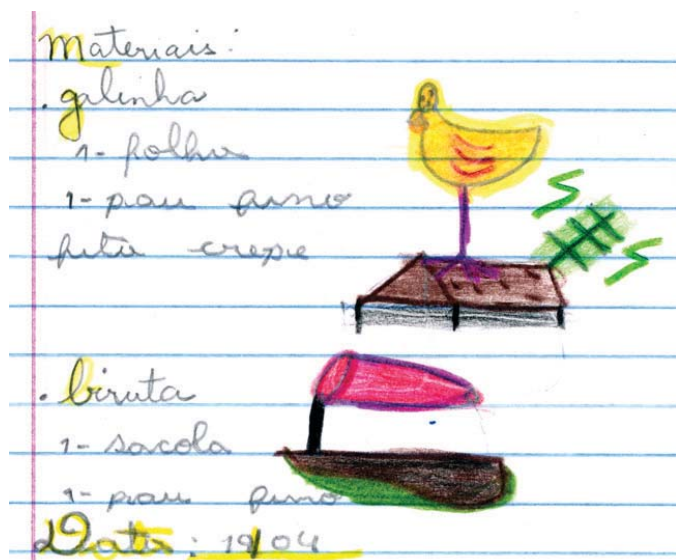 Materiais:
. galinha
1- folha
1- pau fino
fita crepe
. biruta
1- sacola
1- pau fino
Data: 19/04